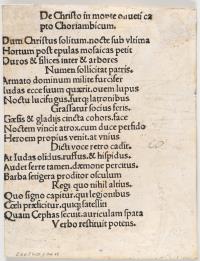 De Christo in monte oliueti ca
pto Choriambicum.
Dum Christus solitum nocte sub vltima
Hortum post epulas mosaicas petit
Duros & silices inter & arbores
Numen sollicitat patris.
Armato dominum milite furcifer
Iudas ecce suum quærit. ouem lupus
Noctu lucifugus, fur&#x20;latronibus
Grassatur socius feris.
Cæsis & gladijs cincta cohors. face
Noctem vincit atrox. cum duce perfido
Heroem propius venit. at vnius
Dicti voce retro cadit.
At Iudas olidus. ruffus. & hispidus.
Audet ferre tamen. dæmone percitus.
Barba setigera proditor osculum
Regi quo nihil altius.
Quo signo capitur. qui legionibus
Cœli præficitur. quique satellitis
Quam Cephas secuit. auriculam spata
Verbo restituit potens.